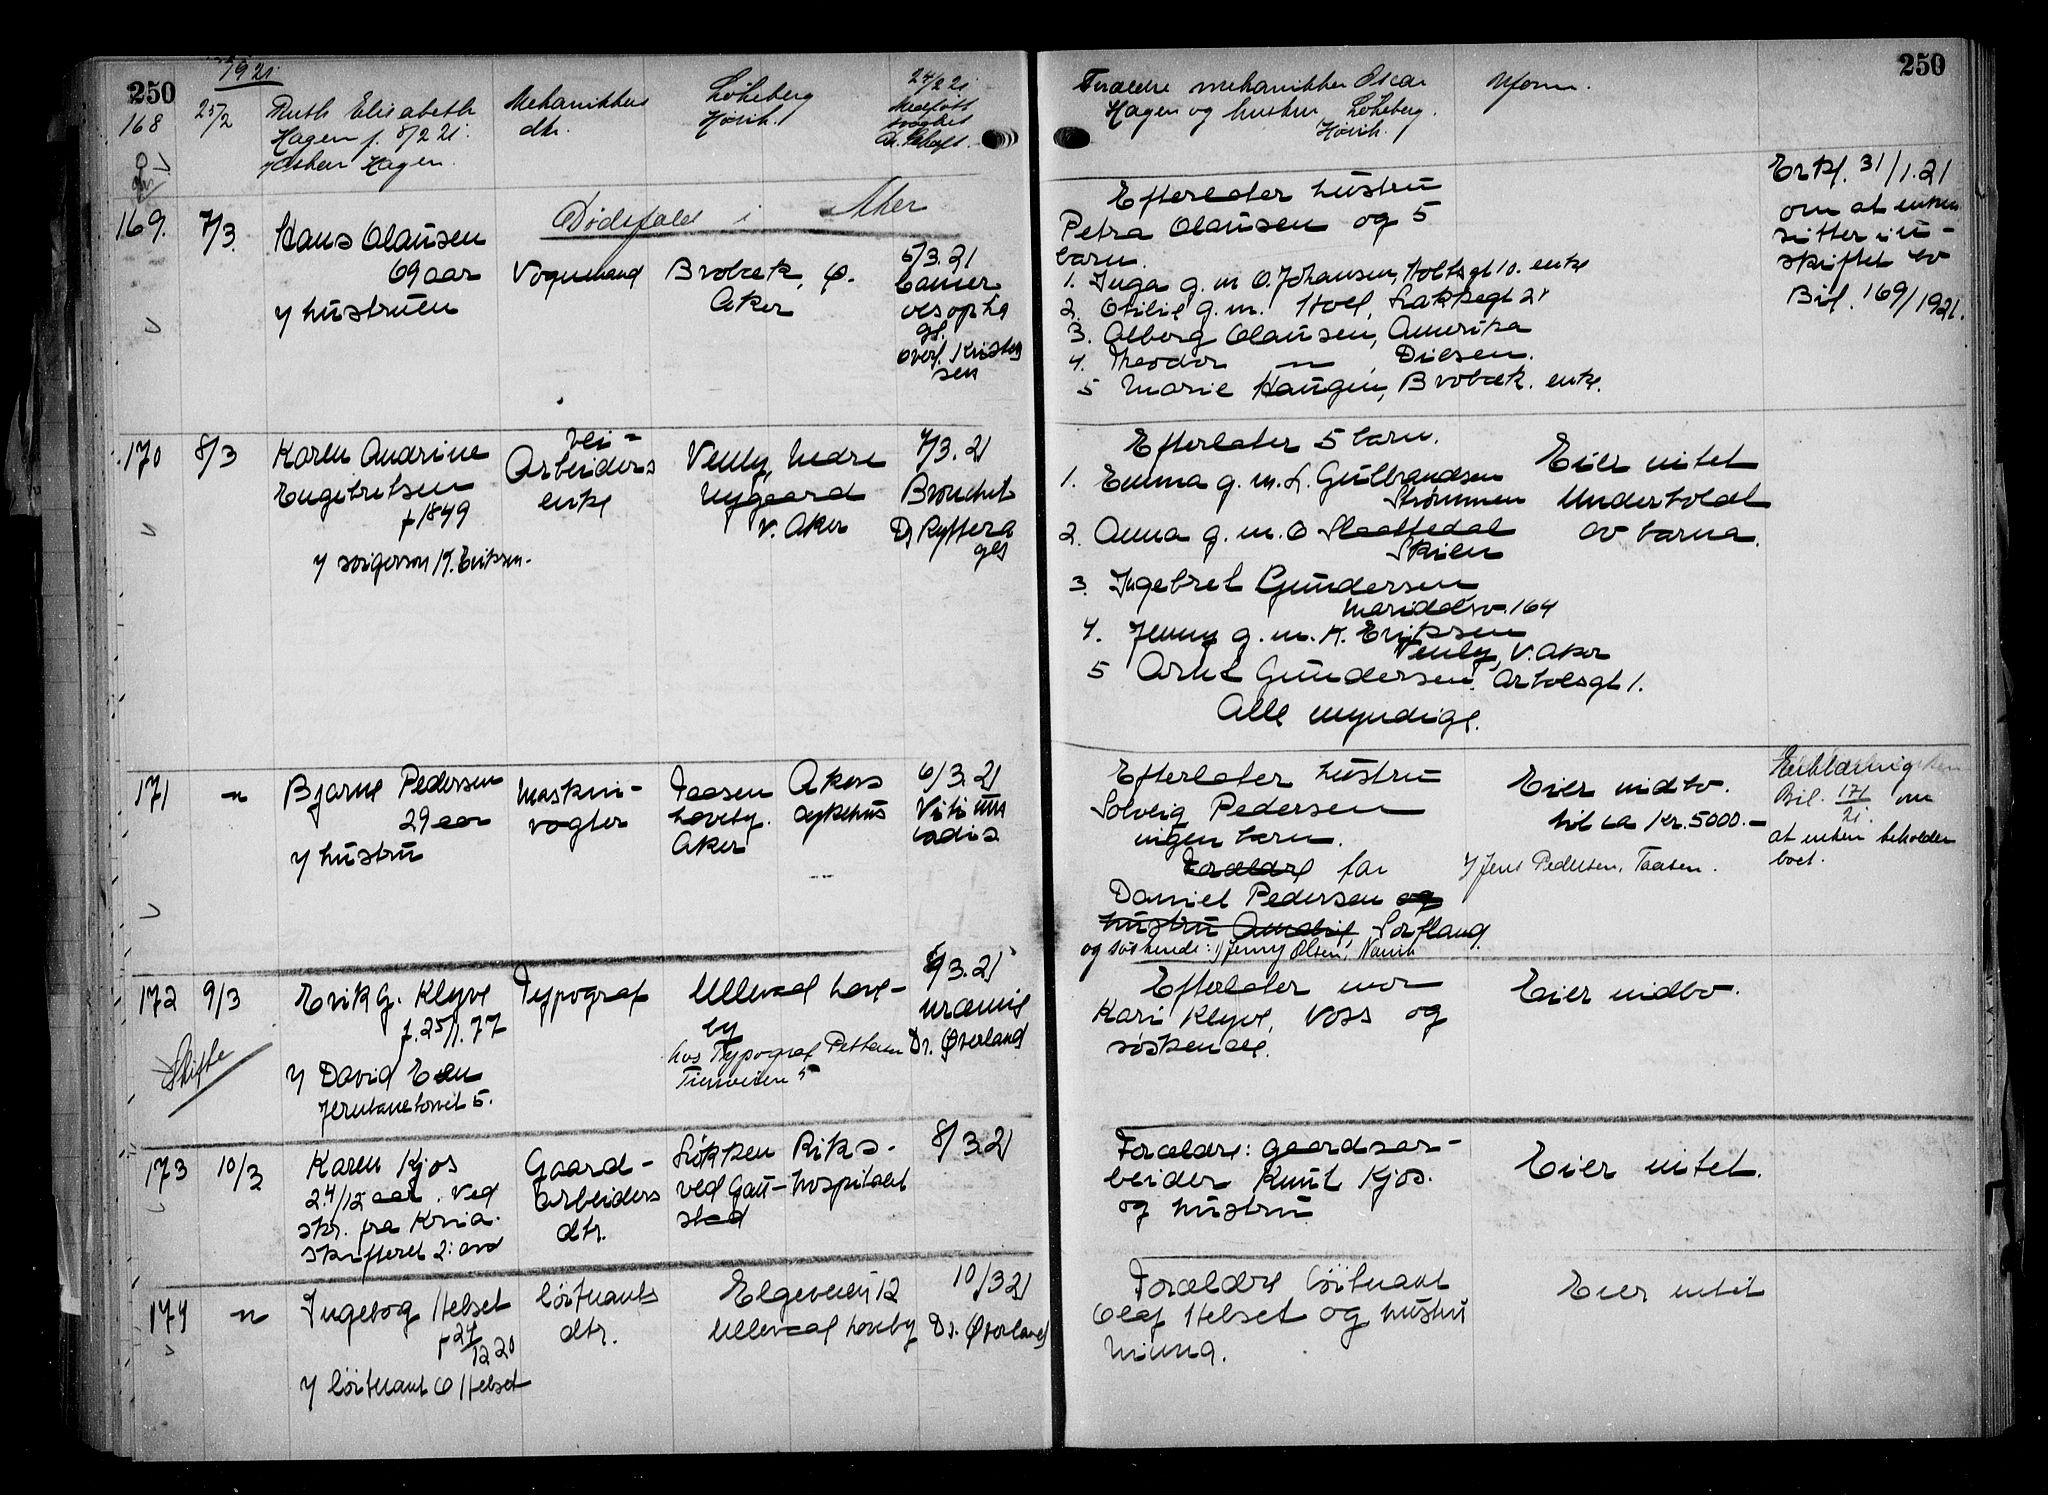 250
1921
168
25/2
Ruth Elisabeth
Hagen f. 8/2 21.
v/ Oskar Hagen.
Mekanikkers
dtr.
Løkeberg
Høvik.
24/2 21
Forældre mekanikker Oscar
Hagen og hustru Løkeberg.
Høvik.
Uform.
250
Dødsfald i Aker
169.
7/3.
Hans Olaüsen
69 aar
v/ hüstrüen
Vognmand
Brobæk, Ø.
Aker
5/3.21
Cancer
oesopha
gs.
overl. Kristen
sen
Efterlater hüstrü
Petra Olaüsen og 5
barn.
1. Inga g. m. O. Johansen, Holtsgt 10. enke
2. Otilie g. m. Holl, Lakkegt 21
3. Alberg Olaüsen, Amerika
4. Theodor — " — , Diesen.
5 Marie Haügen, Brobæk. enke.
Erkl. 31/1.21
om at enken
sitter i ü-
skiftet bo
Bil. 169/1921.
170
8/3
Karen Andrine
Engebretsen
f 1849
v/ svigersøn K. Eriksen.
Vei-
Arbeiders
enke
Venly, Nedre
Nygaard
V. Aker
7/3.21
Bronchit
Dr Ryffera
ges
Efterlater 5 barn.
1. Emma g. m. L. Gülbrandsen
Strømmen
2. Anna g. m. O Slaattedal
Skien
3. Ingebret Gündersen
Maridalsv. 164
4. Jenny g. m. K. Eriksen
Venly, V. Aker
5 Arnt Gündersen. Arbosgt 1.
Alle myndige.
Eier intet
Underholdt
av barna.
171
"
Bjarne Pedersen
29 aar
v/ hüstrü
Maskin-
vogter
Taasen
haveby.
Aker
Akers
sykehüs
6/3.21
Vitiüm
cordis
Efterlater hüstrü
Solveig Pedersen
ingen barn.
Forældre far
Daniel Pedersen og
hüstrü Amalie, Sørfland
og søskende: 1) Jenny Olsen, Namsos
Eier indbo.
til ca kr. 5000.—
v/ Jens Pedersen, Taasen.
Erklæring
Bil. 171/21. om
at enken beholder
boet.
172
9/3
Skifte
Erik G. Klyve
f. 25/1.77
v/ David Eden
Jernbanetorvet 5.
Typograf
Ullevaal have-
by
hos Typograf Pettersen
5
6/3.21
uræmie
Dr. Øverland
Efterlater mor
Kari Klyve, Voss og
søskende.
Eier indbo.
173
10/3
Karen Kjos
2 4/12 aar. Ved
skr. fra Kria.
skifteret 2: avd
Gaard-
arbeiders
dtr.
Løkken
ved Gaü-
stad
Riks-
hospitalet
8/3.21
Forældre: gaardsar-
beider Knüt Kjos.
og hüstrü
Eier intet.
174
"
Ingebog Helset
f 24/12 20
v/ Löitnant O Helset
Löitnants
dtr.
Elgeveien 12
Ullevaal haveby
10/3 21
Dr. Øverland
Forældre Löitnant
Olaf Helset og hüstrü
Minna.
Eier intet